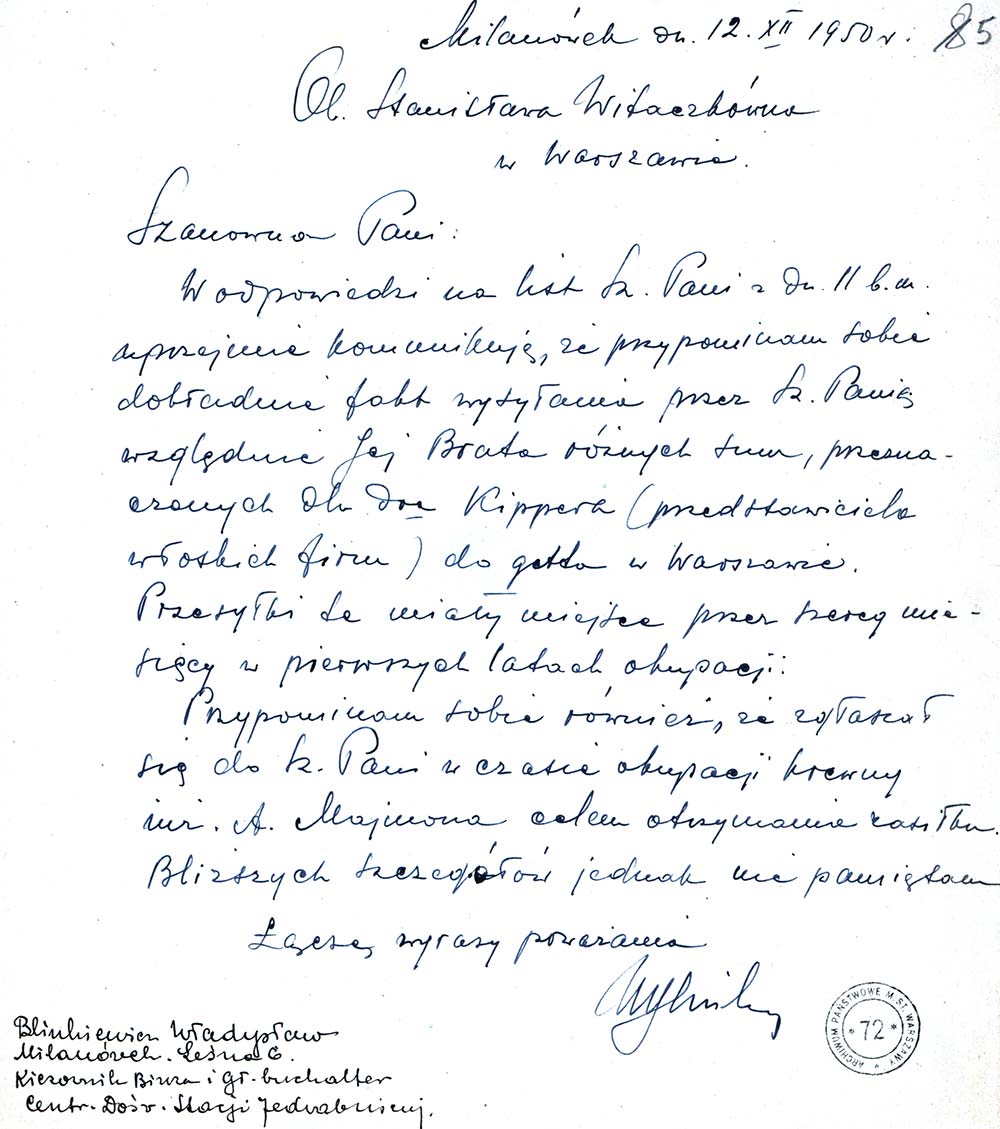 Milanówek dn. 12. XII 1950 r. 85
Ob. Stanisława Witaczkówna
w Warszawie.
Szanowna Pani:
W odpowiedzi na list Sz. Pani z dn. 11 b.m.
uprzejmie komunikuję, że przypominam sobie
dokładnie fakt wysyłania przez Sz. Panią
względnie Jej Brata różnych sum, przezna-
czonych dla dra Kippera (przedstawiciela
włoskich firm) do getta w Warszawie.
Przesyłki te miały miejsce przez szereg mie-
sięcy w pierwszych latach okupacji.
Przypominam sobie również, że zgłaszał
się do Sz. Pani w czasie okupacji krewny
inż. A. Majmona celem otrzymania zasiłku.
Bliższych szczegółów jednak nie pamiętam
Łączę wyrazy poważania
Blinkiewicz Władysław
Milanówek. Leśna 6.
Kierownik Biura i gł. buchalter
Centr. Dośw. Stacji Jedwabniczej.
ARCHIWUM PAŃSTWOWE M. ST. WARSZAWY
* 72 *